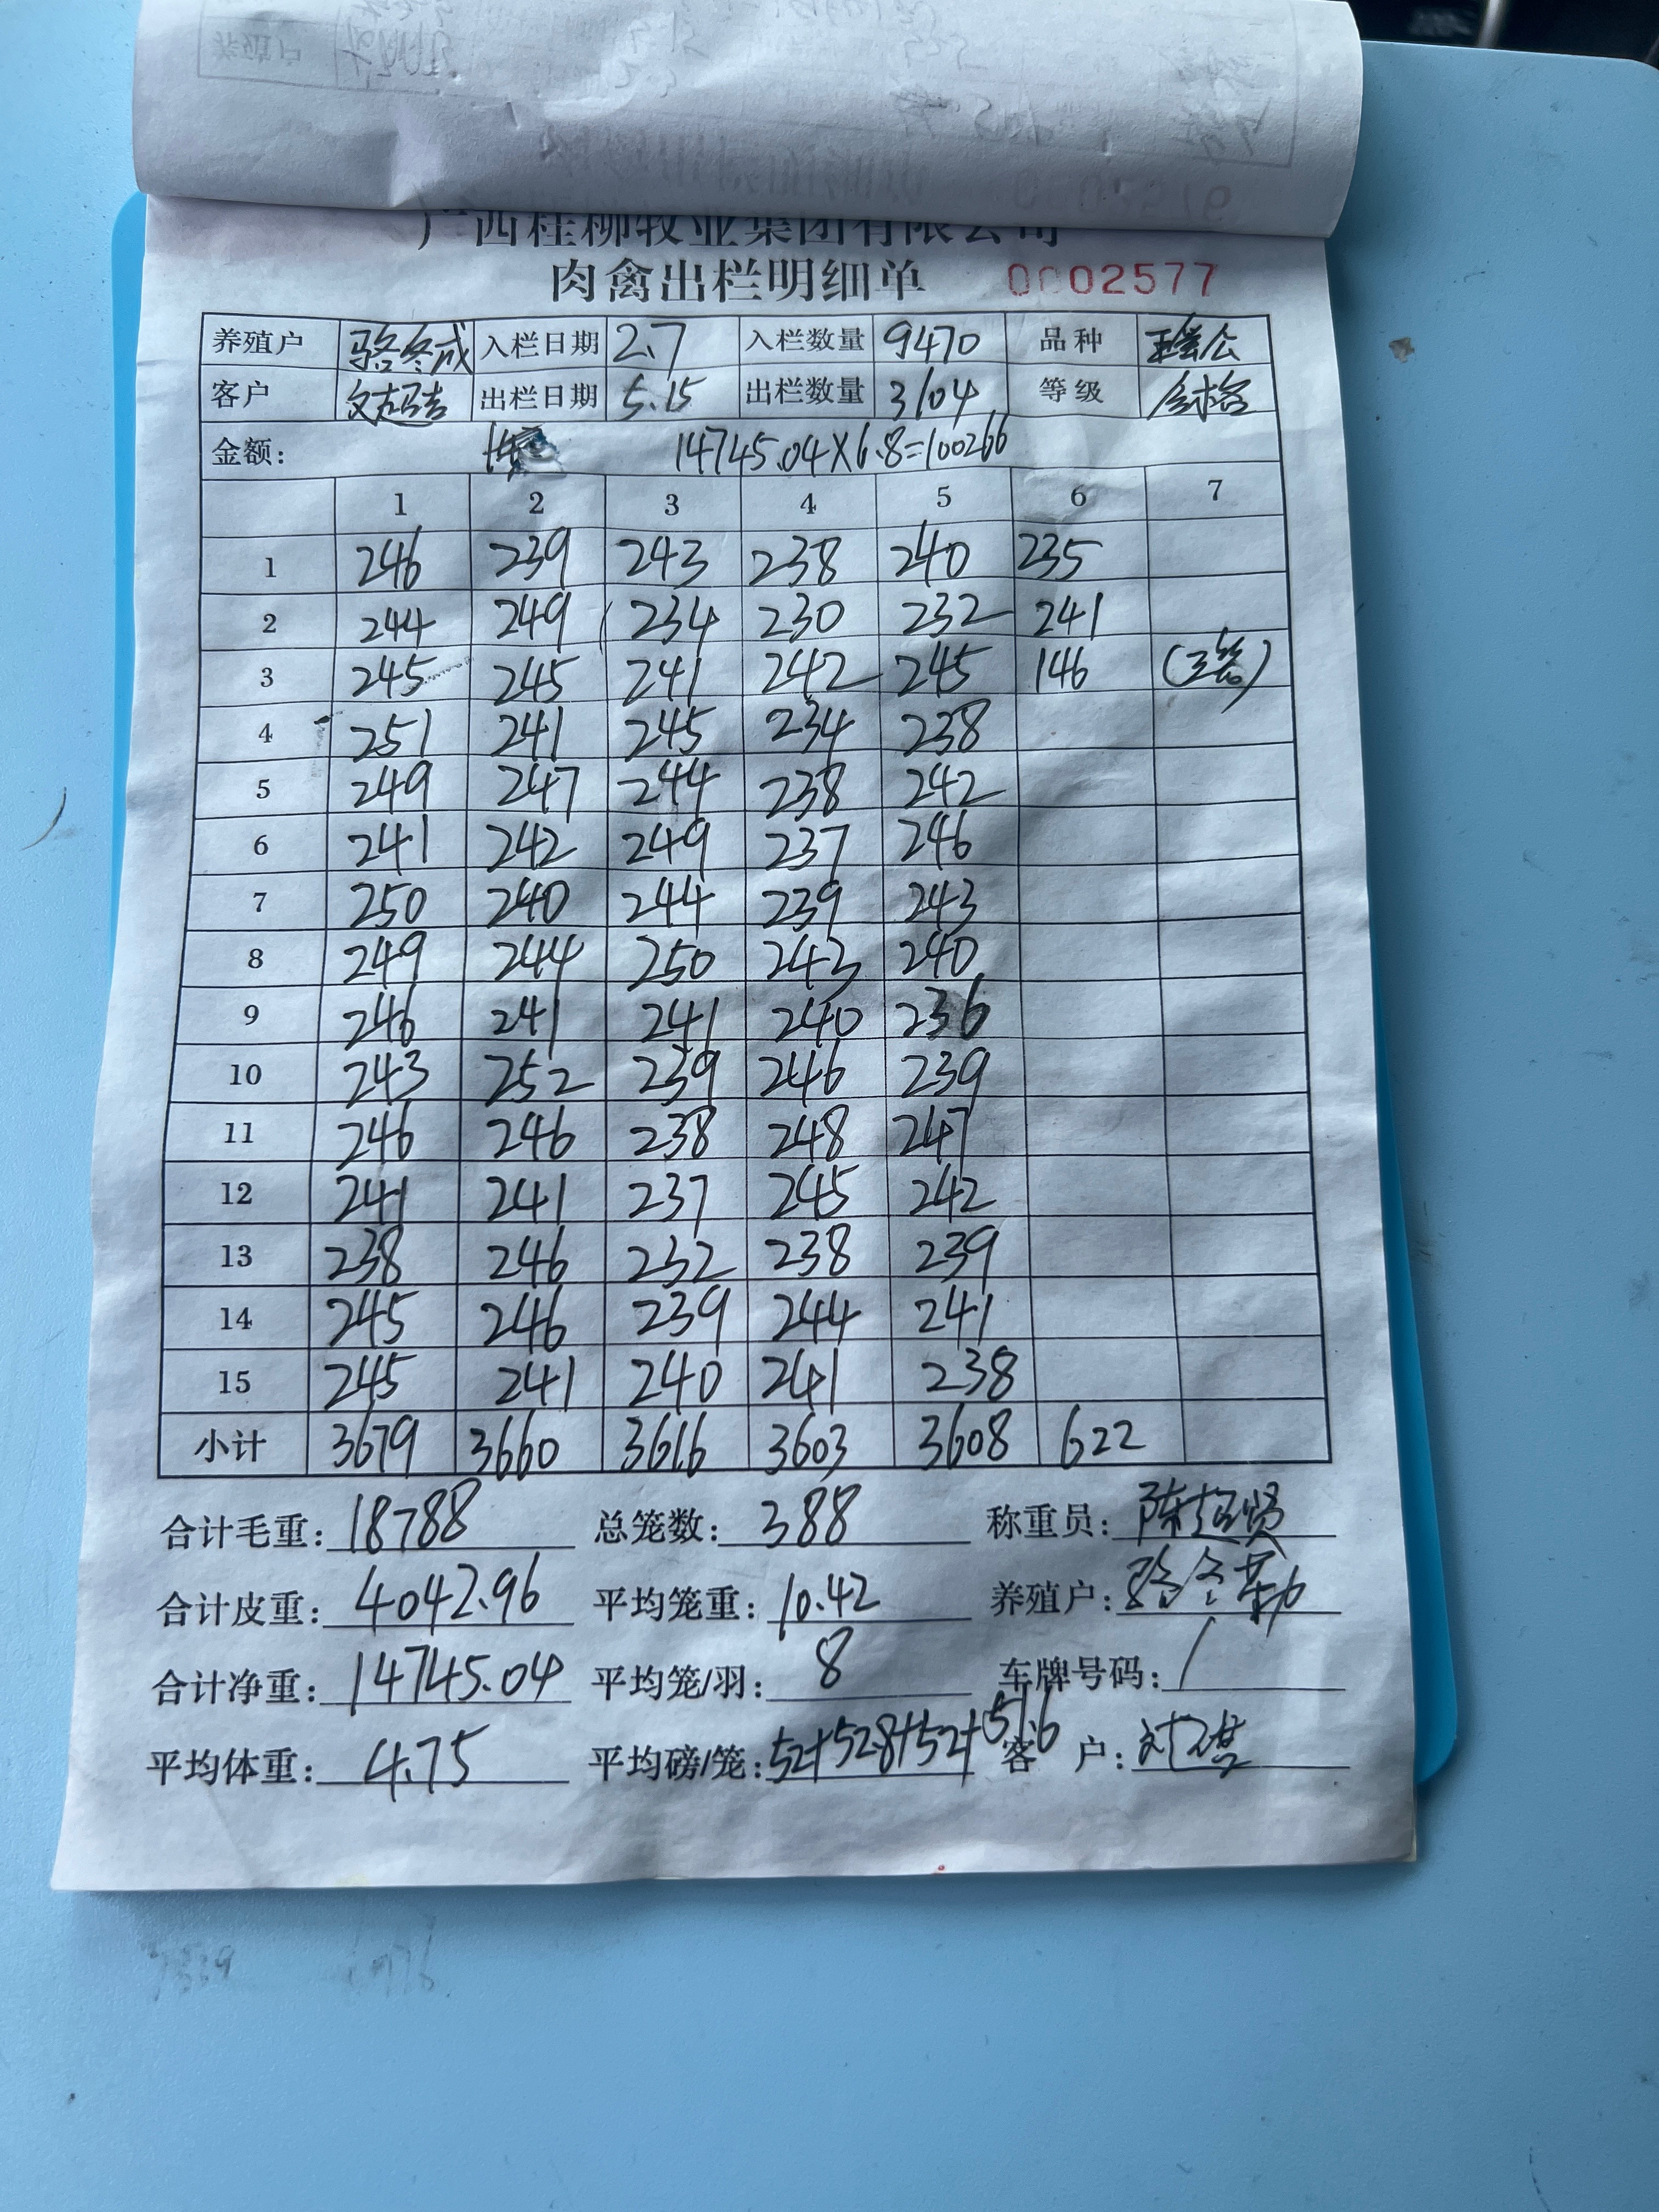 广西桂柳牧业集团有限公司
肉禽出栏明细单 0002577
养殖户 骆冬成 入栏日期 2.7 入栏数量 9470 品种
客户 出栏日期 5.15 出栏数量 3104 等级 合格
金额: 14745.04×6.8=100266
1 2 3 4 5 6 7
1 246 239 243 238 240 235
2 244 249 234 230 232 241
3 245 245 241 242 245 146 (3笼)
4 251 241 245 234 238
5 249 247 244 238 242
6 241 242 249 237 246
7 250 240 244 239 243
8 249 244 250 243 240
9 246 241 241 240 236
10 243 252 239 246 239
11 246 246 238 248 247
12 241 241 237 245 242
13 238 246 232 238 239
14 245 246 239 244 241
15 245 241 240 241 238
小计 3679 3660 3616 3603 3608 622
合计毛重: 18788 总笼数: 388 称重员: 陈超贤
合计皮重: 4042.96 平均笼重: 10.42 养殖户:
合计净重: 14745.04 平均笼/羽: 8 车牌号码: /
平均体重: 4.75 平均磅/笼: 52+52.8+52+51.6 客户: